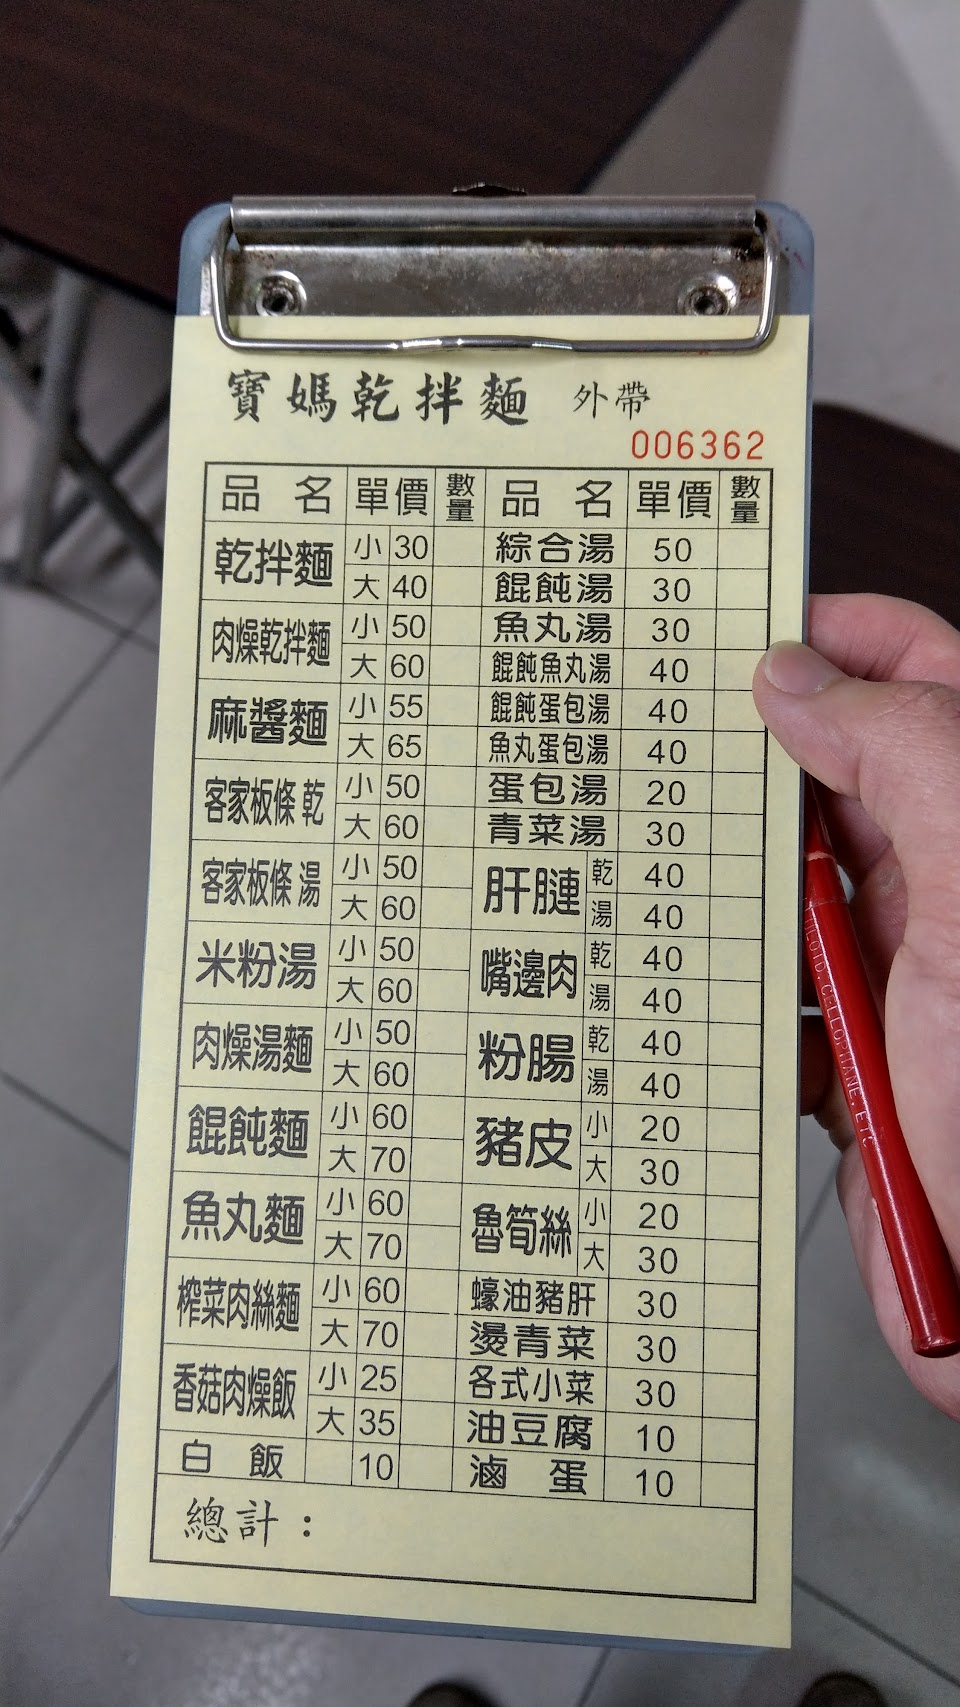 寶媽乾拌麵 外帶
006362
品名 單價 數量 品名 單價 數量
乾拌麵 小 30 綜合湯 50
大 40 餛飩湯 30
肉燥乾拌麵 小 50 魚丸湯 30
大 60 餛飩魚丸湯 40
麻醬麵 小 55 餛飩蛋包湯 40
大 65 魚丸蛋包湯 40
客家板條 乾 小 50 蛋包湯 20
大 60 青菜湯 30
客家板條 湯 小 50 肝膥 乾 40
大 60 湯 40
米粉湯 小 50 嘴邊肉 乾 40
大 60 湯 40
肉燥湯麵 小 50 粉腸 乾 40
大 60 湯 40
餛飩麵 小 60 豬皮 小 20
大 70 大 30
魚丸麵 小 60 魯筍絲 小 20
大 70 大 30
榨菜肉絲麵 小 60 蠔油豬肝 30
大 70 燙青菜 30
香菇肉燥飯 小 25 各式小菜 30
大 35 油豆腐 10
白飯 10 滷蛋 10
總計：
CELLOPHANE, ETC